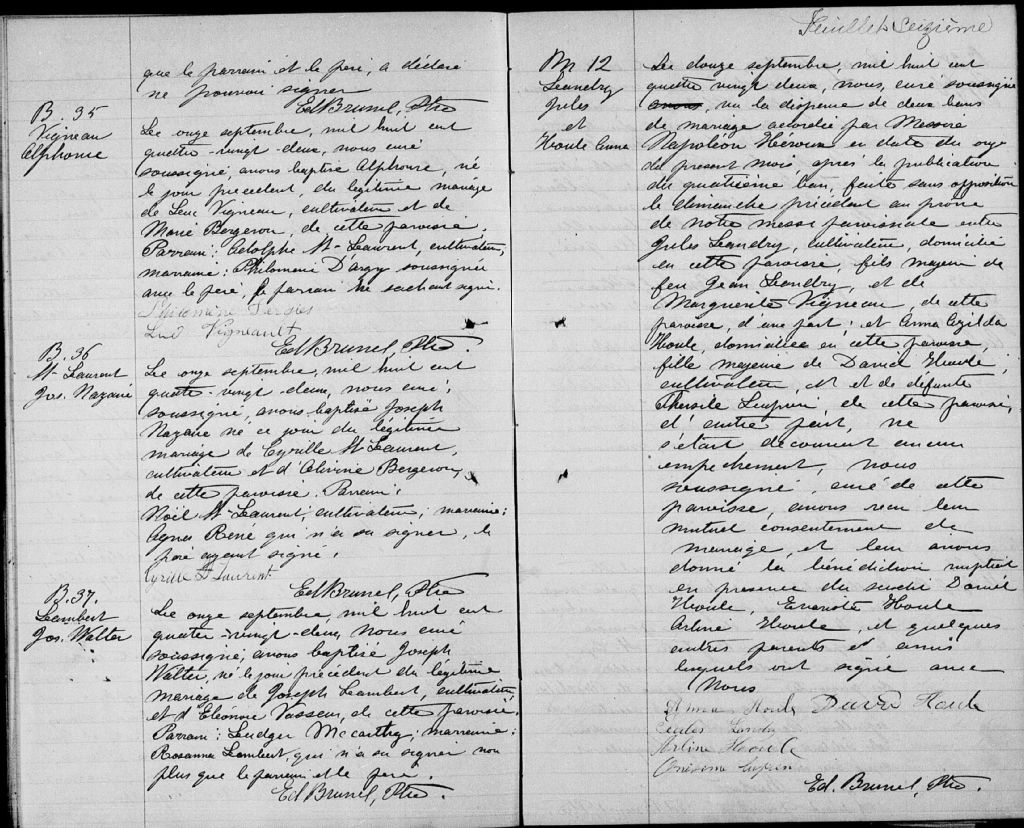 que le parrain et le père, a déclaré
ne pouvoir signer
Ed Brunel, Ptre
B. 35
Vigneau
Alphonse
Le onze septembre, mil huit cent
quatre-vingt-deux, nous curé
soussigné, avons baptisé Alphonse, né
le jour précédent, du légitime mariage
de Luc Vigneau, cultivateur et de
Marie Bergeron, de cette paroisse.
Parrain: Adolphe St-Laurent, cultivateur,
marraine: Philomène D'argy soussignée
avec le père, le parrain ne sachant signer.
Philomene
Luc Vigneault
Ed Brunel, Ptre.
B. 36
St Laurent
Jos. Nazaire
Le onze septembre, mil huit cent
quatre-vingt-deux, nous curé,
soussigné, avons baptisé Joseph
Nazaire né ce jour du légitime
mariage de Cyrille St Laurent,
cultivateur et d'Elvine Bergeron,
de cette paroisse. Parrain:
Noël St-Laurent, cultivateur; marraine:
Agnes René qui n'a su signer, le
père ayant signé.
Cyrille St Laurent
Ed Brunel, Ptre
B. 37.
Lambert
Jos. Walter
Le onze septembre, mil huit cent
quatre-vingt-deux, nous curé
soussigné, avons baptisé Joseph
Walter, né le jour précédent du légitime
mariage de Joseph Lambert, cultivateur,
et d'Eléonore Vasseur, de cette paroisse.
Parrain: Ludger Mccarthy; marraine:
Rosanna Lambert, qui n'a su signer non
plus que le parrain et le père.
Ed Brunel, Ptre.
Feuillet Seizième
M 12
Leandry
Jules
et
Houle Anna
Le douze septembre, mil huit cent
quatre vingt deux, nous, curé soussigné
avons, vu la dispense de deux bans
de mariage accordée par Messire
Napoléon Héroux en date du onze
du present mois après la publication
du quatrième ban, faite sans opposition
le dimanche précédent au prône
de notre messe paroissiale entre
Jules Leandry, cultivateur, domicilié
en cette paroisse, fils majeur de
feu Jean Leandry, et de
Marguerite Vigneau, de cette
paroisse, d'une part; et Anna Exilda
Houle, domiciliée en cette paroisse,
fille majeure de David Houle,
cultivateur, et de défunte
Thersile, de cette paroisse,
d'autre part, ne
s'étant découvert aucun
empêchement, nous
soussigné, curé de cette
paroisse, avons reçu leur
mutuel consentement de
mariage, et leur avons
donné la bénédiction nuptiale
en présence du susdit David
Houle, Evariste Houle
Arline Houle, et quelques
autres parents et amis
lesquels ont signé avec
Nous
Anna Houle David Houle
Jules Landry
Arline Houle
Onésime
Ed. Brunel, Ptre.